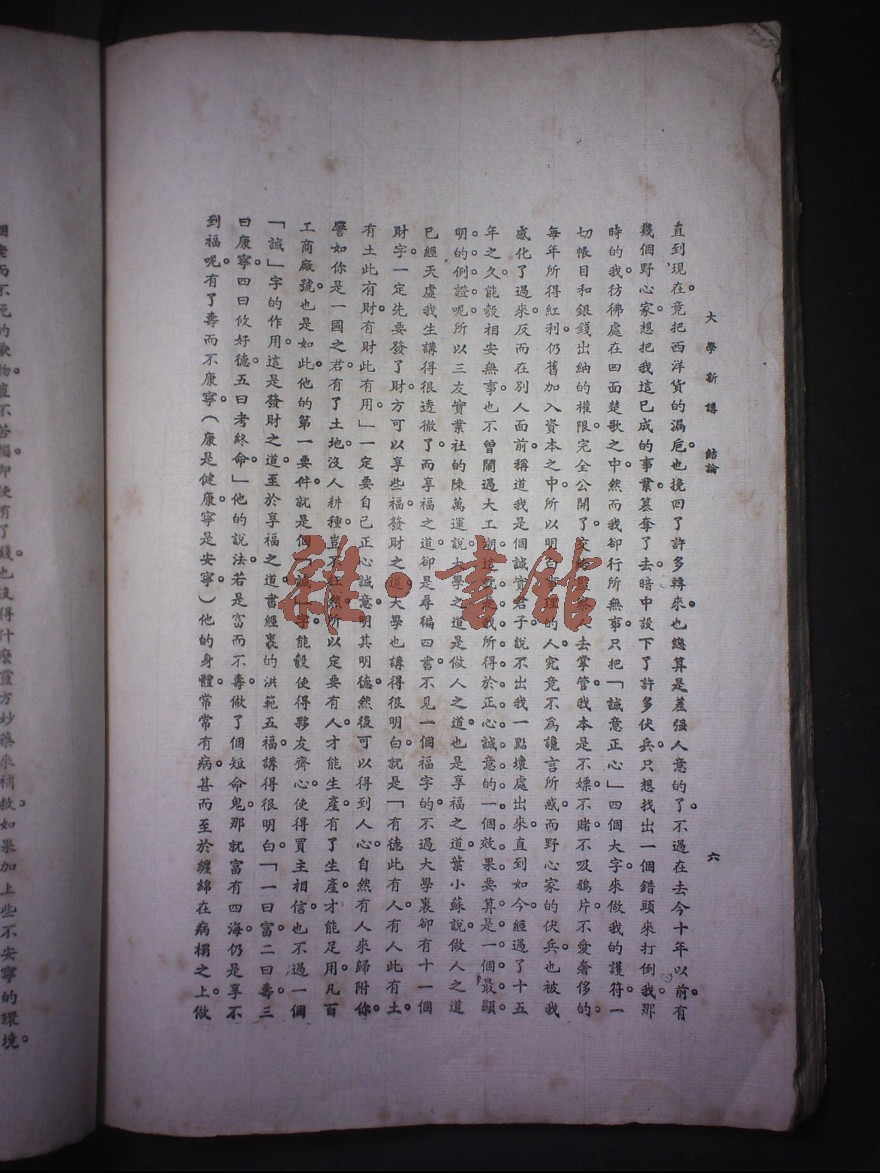 大學新講　結論
六
直到現在。竟把西洋貨的漏卮。也挽回了許多轉來。也總算是差强人意的了。不過在去今十年以前。有
幾個野心家。想把我這已成的事業。篡奪了去。暗中設下了許多伏兵。只想找出一個錯頭來打倒我。那
時的我。彷彿處在四面楚歌之中。然而我卻行所無事。只把「誠意正心」四個大字來做我的護符。一
切帳目和銀錢出納的權限。完全公開了。交 去掌管。我本是不嫖。不賭。不吸鴉片。不愛奢侈的。
每年所得紅利。仍舊加入資本之中。所以明白事理的人。究竟不為讒言所惑。而野心家的伏兵。也被我
感化了過來。反而在別人面前。稱道我是個誠實君子。說不出我一點壞處出來。直到如今。經過了十五
年之久。能彀相安無事。也不曾鬧過大工潮。這 我所得於正心誠意的一個效果。要算是一個最顯
明的例證呢。所以三友實業社的陳萬運說。大學之道。是做人之道。也是享福之道。葉小蘇說。做人之道
已經天虛我生講得很透徹了。而享福之道。卻是尋徧四書。不見一個福字的。不過大學裏。卻有十一個
財字。一定先要發了財。方可以享些福。發財之道。大學也講得很明白。就是「有德此有人。有人此有土。
有土此有財。有財此有用。」一定要自己正心誠意。明其明德。然後可以得到人心。自然有人來歸附你。
譬如你是一國之君。有了土地。沒人耕種。豈不 然。所以定要有人。才能生產。有了生產。才能足用。凡百
工商廠號。也是如此。他的第一要件。就是個「誠」字。能彀使得夥友齊心。使得買主相信。也不過一個
「誠」字的作用。這是發財之道。至於享福之道。書經裏的洪範五福。講得很明白。「一曰富。二曰壽。三
曰康寧。四曰攸好德。五曰考終命。」他的說法。若是富而不壽。做了個短命鬼。那就富有四海。仍是享不
到福呢。有了壽而不康寧。（康是健康。寧是安寧。）他的身體常常有病。甚而至於纏綿在病榻之上。做
不死的 物。豈不苦惱。卽使有了錢。也沒得什麼靈方妙藥來補救。如果加上些不安寧的環境。
雜·書館